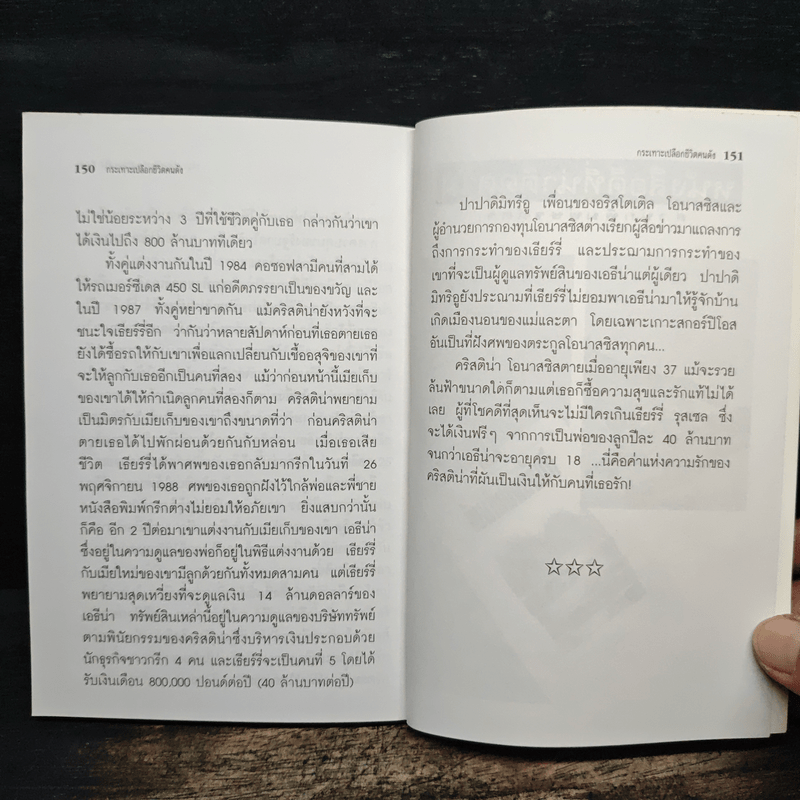 150 กระเทาะเปลือกชีวิตคนดัง
ไม่ใช่น้อยระหว่าง 3 ปีที่ใช้ชีวิตคู่กับเธอ กล่าวกันว่าเขา
ได้เงินไปถึง 800 ล้านบาททีเดียว
ทั้งคู่แต่งงานกันในปี 1984 คอซอฟสามีคนที่สามได้
ให้รถเมอร์ซีเดส 450 SL แก่อดีตภรรยาเป็นของขวัญ และ
ในปี 1987 ทั้งคู่หย่าขาดกัน แม้คริสติน่ายังหวังที่จะ
ชนะใจเธียร์รี่อีก ว่ากันว่าหลายสัปดาห์ก่อนที่เธอตายเธอ
ยังได้ซื้อรถให้กับเขาเพื่อแลกเปลี่ยนกับเชื้ออสุจิของเขาที่
จะให้ลูกกับเธออีกเป็นคนที่สอง แม้ว่าก่อนหน้านี้เมียเก็บ
ของเขาได้ให้กำเนิดลูกคนที่สองก็ตาม คริสติน่าพยายาม
เป็นมิตรกับเมียเก็บของเขาถึงขนาดที่ว่า ก่อนคริสติน่า
ตายเธอได้ไปพักผ่อนด้วยกันกับหล่อน เมื่อเธอเสีย
ชีวิต เธียร์รี่ได้พาศพของเธอกลับมากรีกในวันที่ 26
พฤศจิกายน 1988 ศพของเธอถูกฝังไว้ใกล้พ่อและพี่ชาย
หนังสือพิมพ์กรีกต่างไม่ยอมให้อภัยเขา ยิ่งแสบกว่านั้น
ก็คือ อีก 2 ปีต่อมาเขาแต่งงานกับเมียเก็บของเขา เอธีน่า
ซึ่งอยู่ในความดูแลของพ่อก็อยู่ในพิธีแต่งงานด้วย เธียร์รี่
กับเมียใหม่ของเขามีลูกด้วยกันทั้งหมดสามคน แต่เธียร์รี่
พยายามสุดเหวี่ยงที่จะดูแลเงิน 14 ล้านดอลลาร์ของ
เอธีน่า ทรัพย์สินเหล่านี้อยู่ในความดูแลของบริษัททรัพย์
ตามพินัยกรรมของคริสติน่าซึ่งบริหารเงินประกอบด้วย
นักธุรกิจชาวกรีก 4 คน และเธียร์รี่จะเป็นคนที่ 5 โดยได้
รับเงินเดือน 800,000 ปอนด์ต่อปี (40 ล้านบาทต่อปี)
กระเทาะเปลือกชีวิตคนดัง 151
ปาปาดิมิทรีอู เพื่อนของอริสโตเติล โอนาสซิสและ
ผู้อำนวยการกองทุนโอนาสซิสต่างเรียกผู้สื่อข่าวมาแถลงการ
ถึงการกระทำของเธียร์รี่ และประฌามการกระทำของ
เขาที่จะเป็นผู้ดูแลทรัพย์สินของเอธีน่าแต่ผู้เดียว ปาปาดิ
มิทรีอูยังประฌามที่เธียร์รี่ไม่ยอมพาเอธีน่ามาให้รู้จักบ้าน
เกิดเมืองนอนของแม่และตา โดยเฉพาะเกาะสกอร์ปิโอส
อันเป็นที่ฝังศพของตระกูลโอนาสซิสทุกคน...
คริสติน่า โอนาสซิสตายเมื่ออายุเพียง 37 แม้จะรวย
ล้นฟ้าขนาดใดก็ตามแต่เธอก็ซื้อความสุขและรักแท้ไม่ได้
เลย ผู้ที่โชคดีที่สุดเห็นจะไม่มีใครเกินเธียร์รี่ รุสเซล ซึ่ง
จะได้เงินฟรีๆ จากการเป็นพ่อของลูกปีละ 40 ล้านบาท
จนกว่าเอธีน่าจะอายุครบ 18 ...นี่คือค่าแห่งความรักของ
คริสติน่าที่ผันเป็นเงินให้กับคนที่เธอรัก!